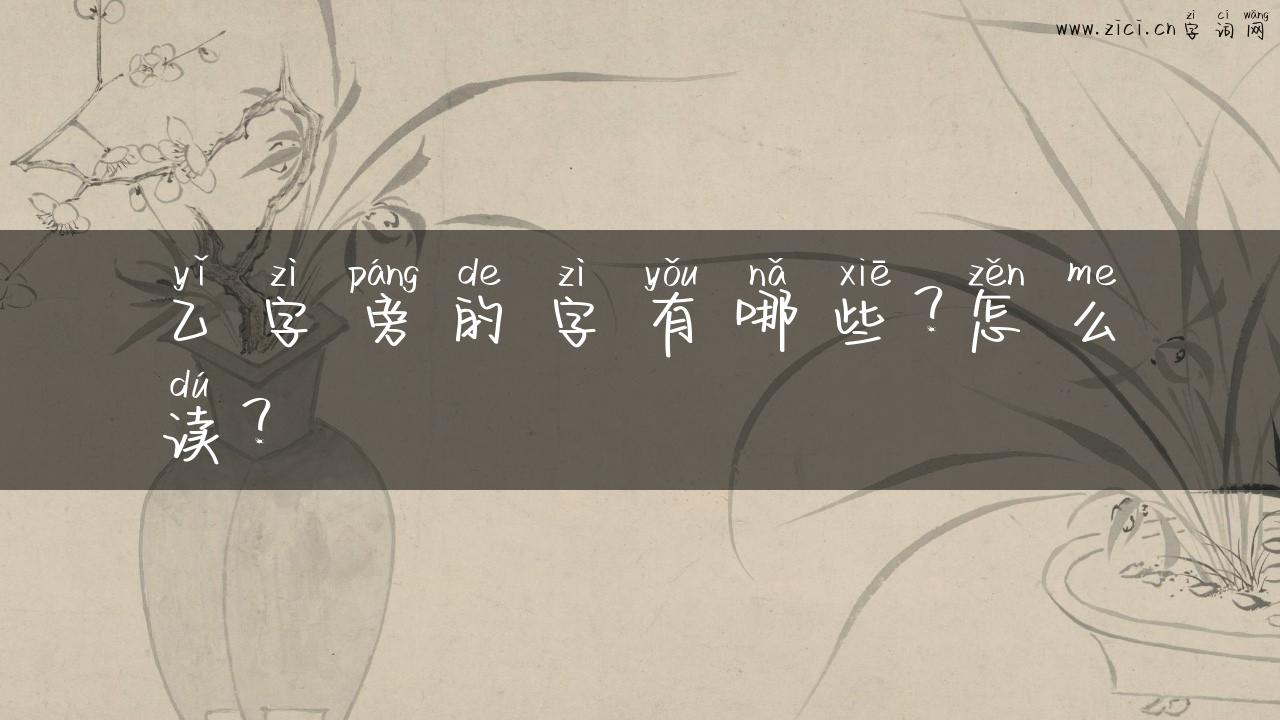 zì cí wǎng
www.zici.cn 字词网
yǐ zì páng de zì yǒu nǎ xiē zěn me
乙字旁的字有哪些？怎么
dú
读？